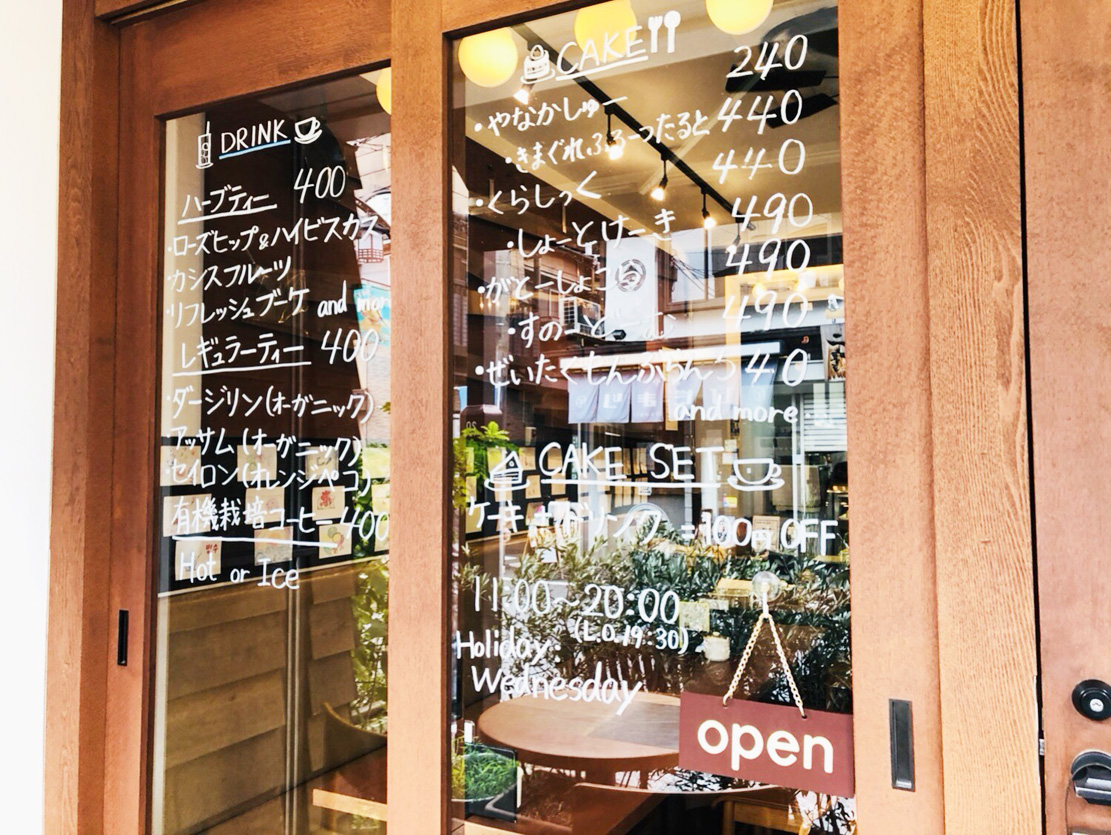 DRINK
ハーブティー 400
・ローズヒップ&ハイビスカス
カシスフルーツ
リフレッシュブーケ and more
レギュラーティー 400
・ダージリン(オーガニック)
アッサム(オーガニック)
・セイロン(オレンジペコ)
有機栽培コーヒー 400
Hot or Ice
CAKE
・やなかしゅー 240
・きまぐれふるーつたると 440
・くらしっく 440
・しょーとけーき 490
・がとーしょこ 490
・すのーどーむ 490
・ぜいたくもんぶらん 540
and more
CAKE SET
ケーキ+ドリンク =100円OFF
11:00~20:00
(L.O.19:30)
Holiday:
Wednesday
open